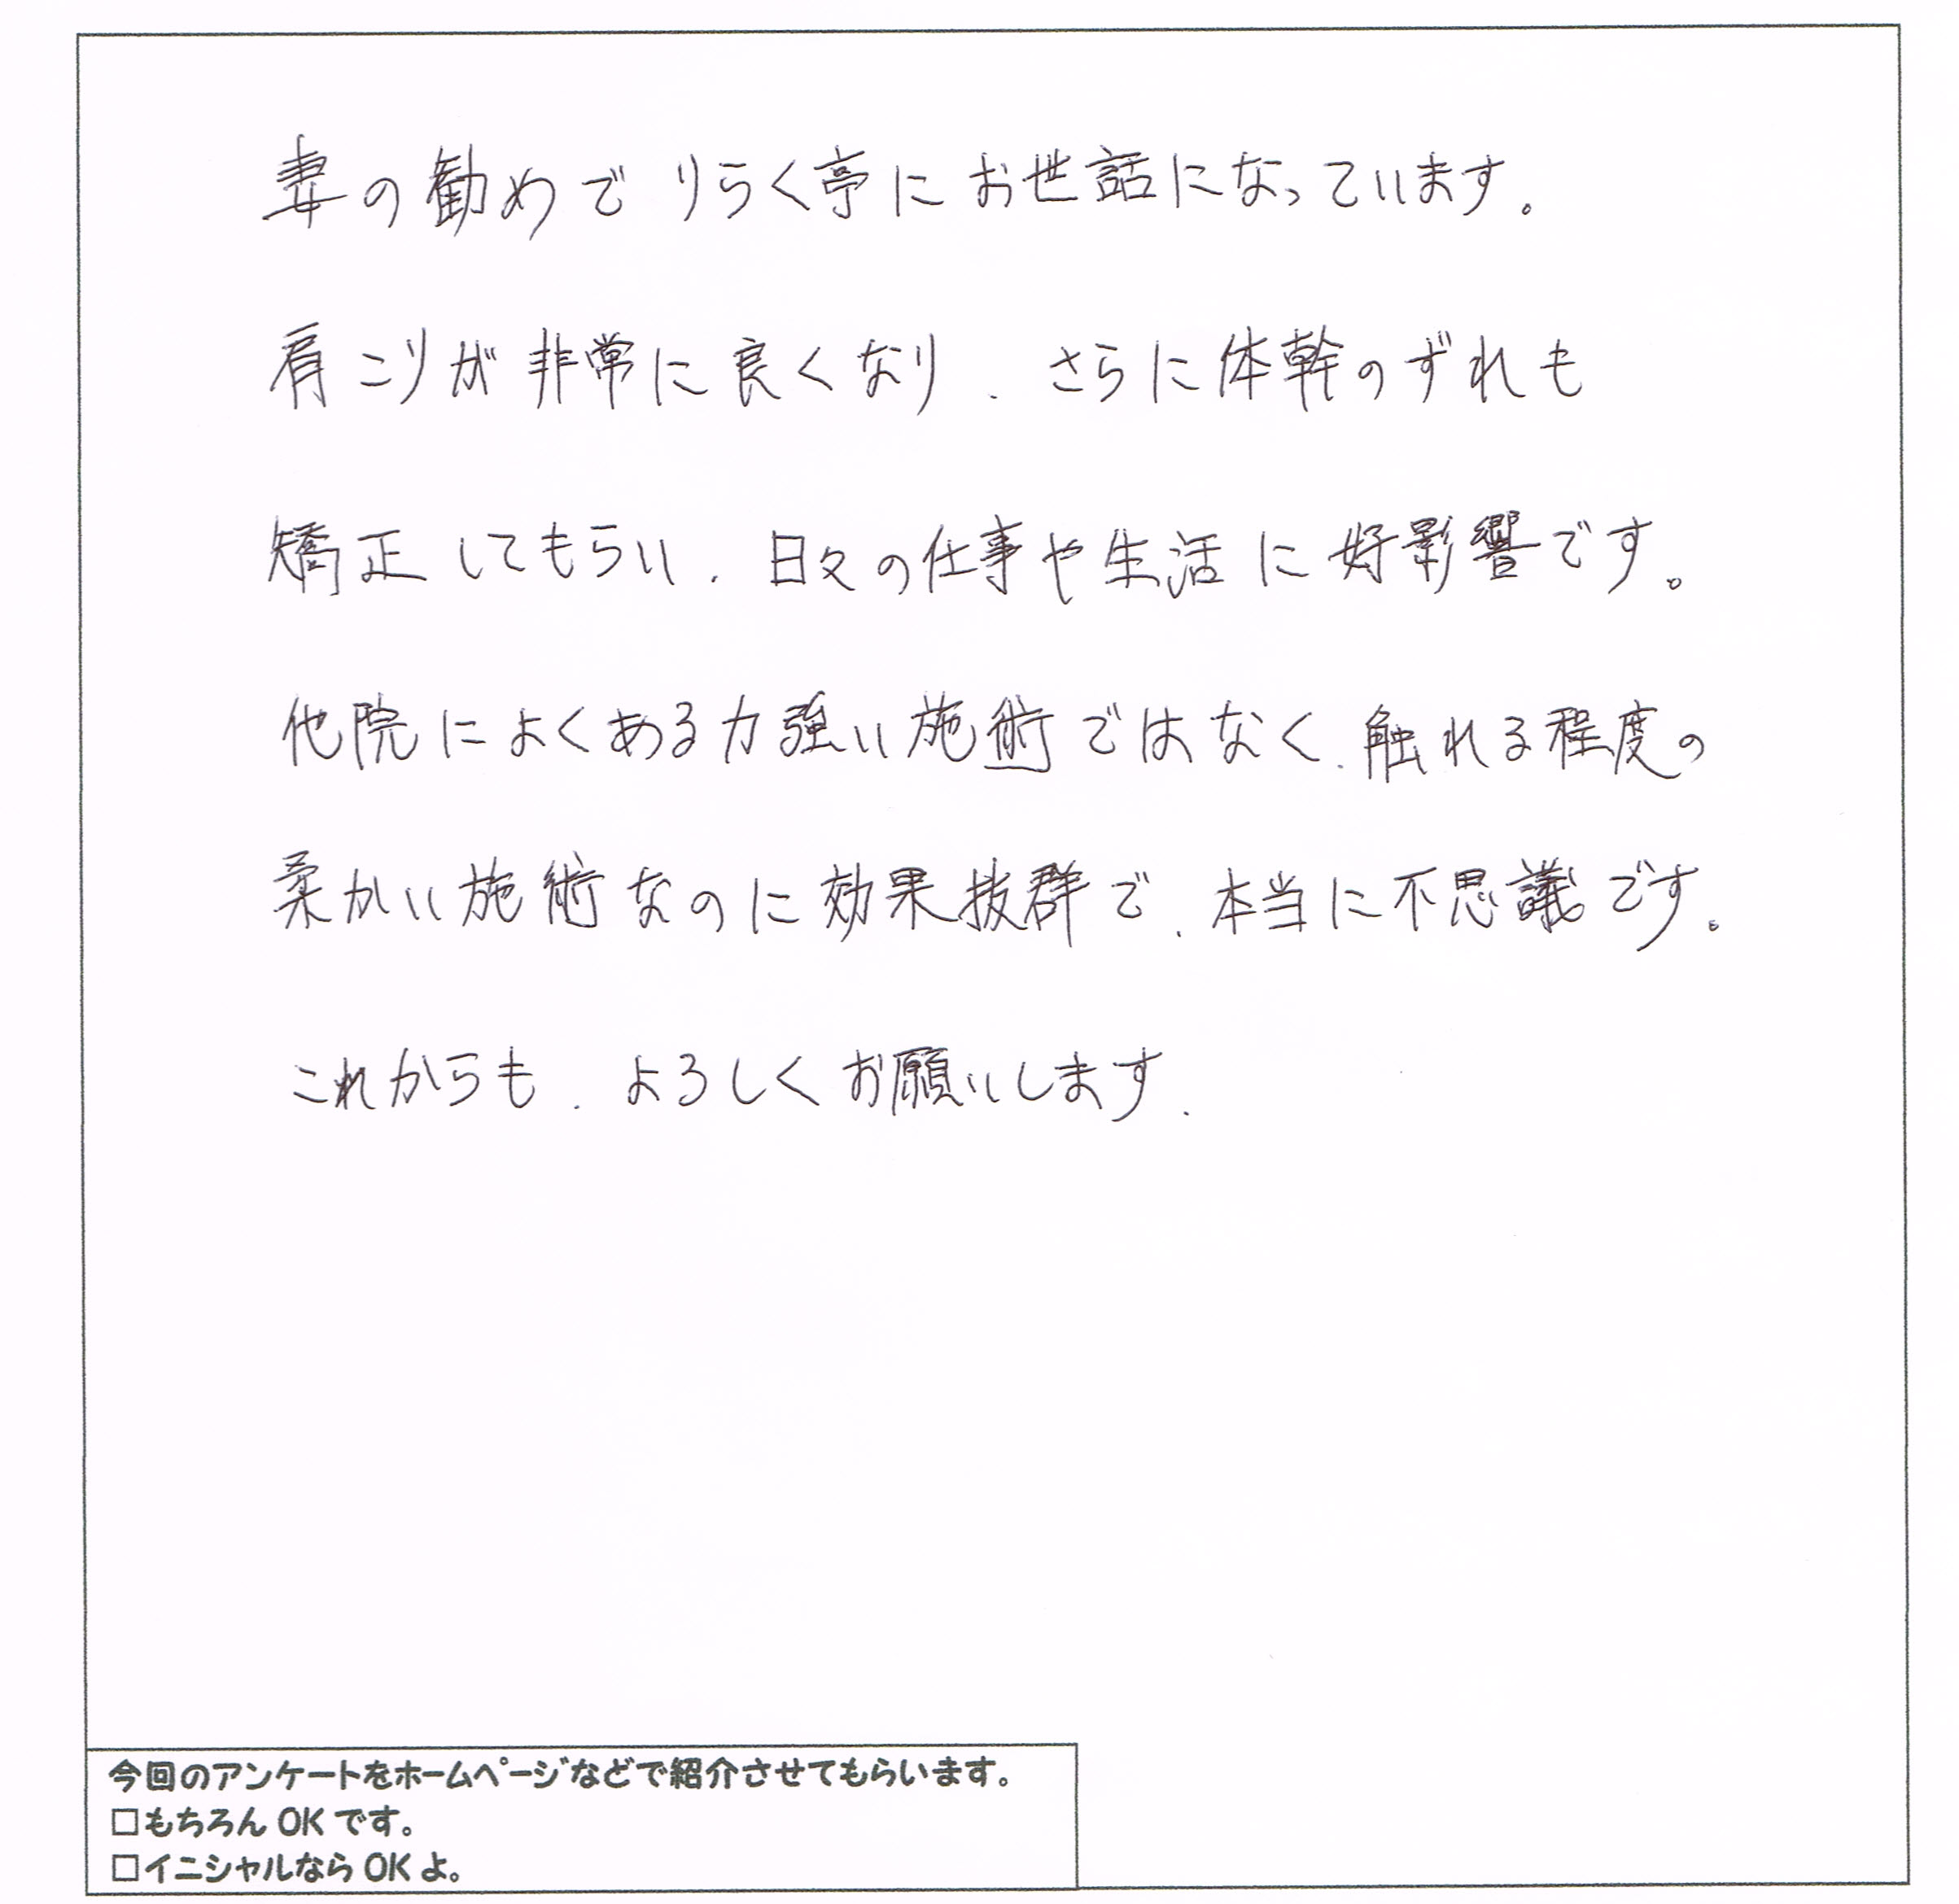 妻の勧めでりらく亭にお世話になっています。
肩こりが非常に良くなり、さらに体幹のずれも
矯正してもらい、日々の仕事や生活に好影響です。
他院によくある力強い施術ではなく、触れる程度の
柔かい施術なのに効果抜群で、本当に不思議です。
これからも、よろしくお願いします.
今回のアンケートをホームページなどで紹介させてもらいます。
□もちろんOKです。
□イニシャルならOKよ。